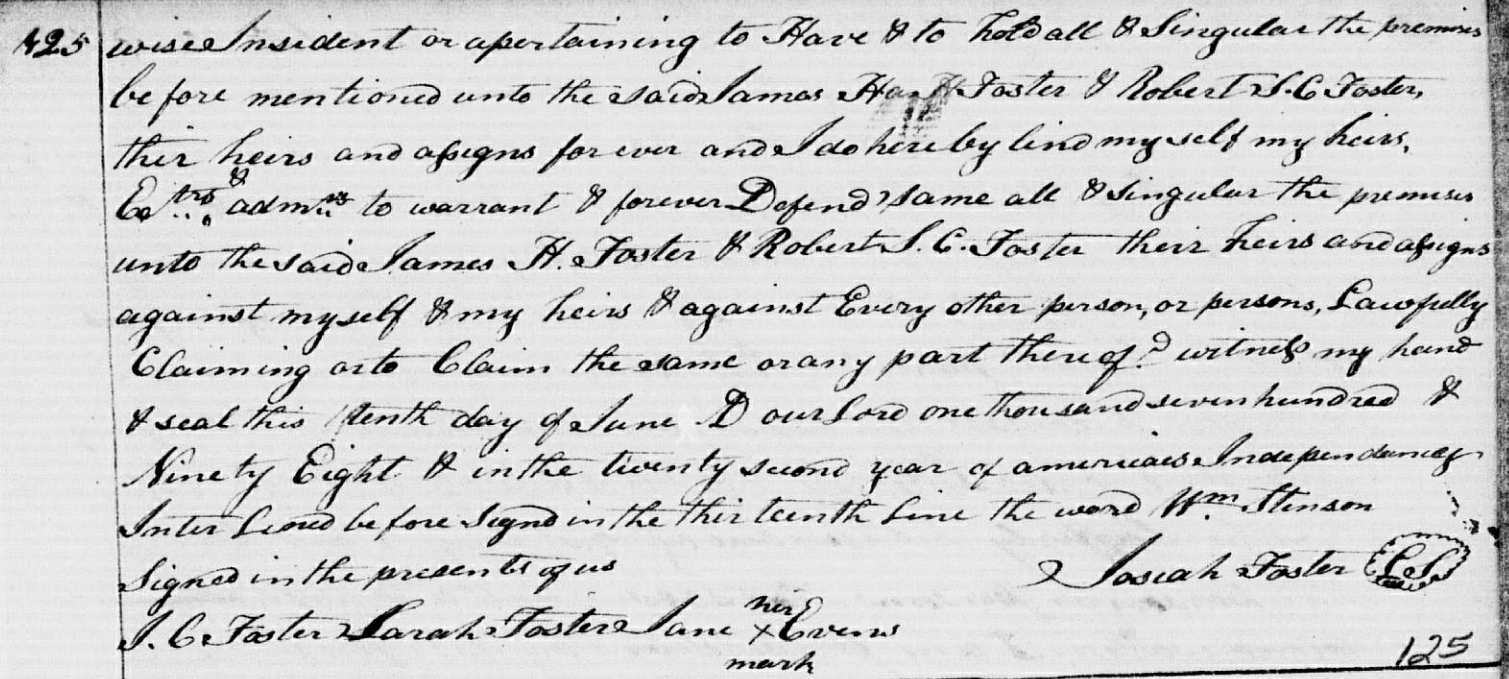 125 wise Insident or apertaining to Have & to hold all & Singular the premises
before mentioned unto the said James Har H Foster & Robert S. C. Foster,
thir heirs and assigns for ever and I do hereby bind my self my heirs,
Extrs & admrs to warrant & forever Defend same all & singular the premises
unto the said James H. Foster & Robert S. C. Foster their heirs and assigns
against myself & my heirs & against Every other person, or persons, Lawfully
Claiming or to Claim the same or any part there of witness my hand
& seal this tenth day of June D our Lord one thousand seven hundred &
Ninety Eight & in the twenty second year of americais Independency
Inter Lined before Signd in the thirteenth Line the word Wm. Stenson
Signed in the presents of us Josiah Foster LS
J. C. Foster Sarah Foster Jane her x Evens
mark 125